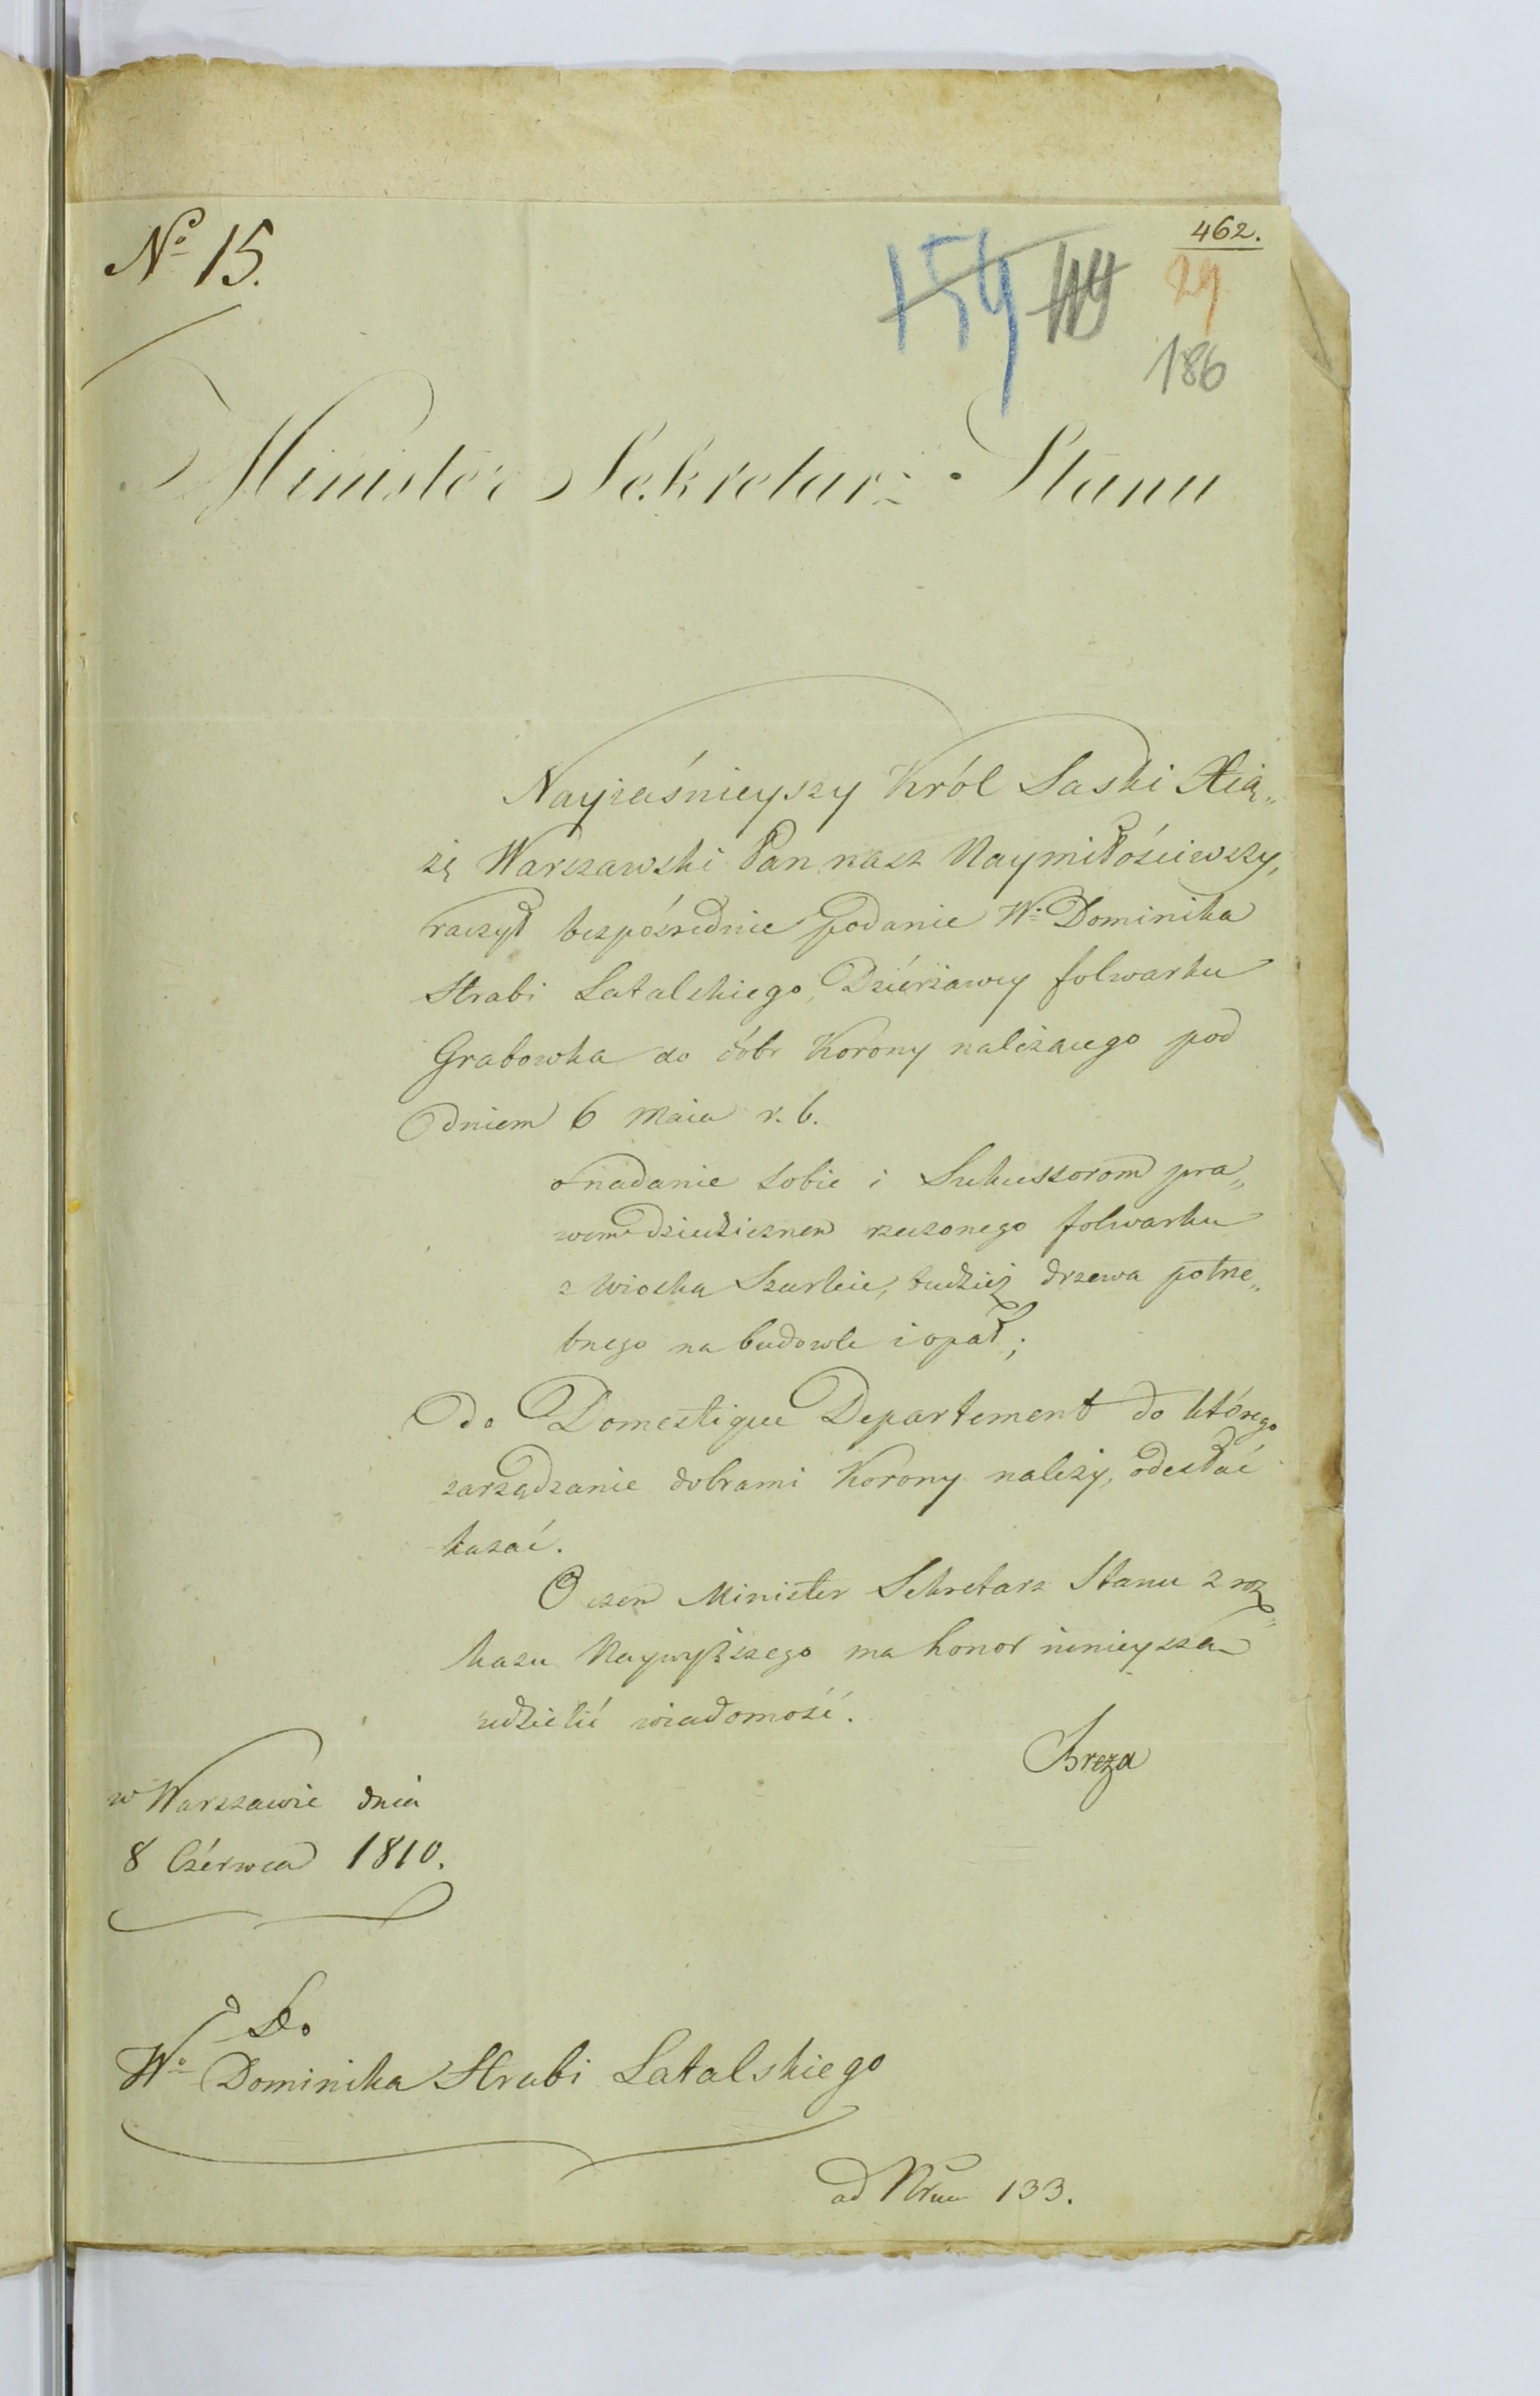 462.
No 15.
159 119 29
186
Minister Sekretarz Stanu
Nayiaśnieyszy Król Saski Xią„
żę Warszawski Pan nasz Naymiłościwszy,
raczył bezpośrednie podanie W: Dominika
Hrabi Latalskiego, Dzierżawcy folwarku
Grabowka do dóbr Korony należącego pod
dniem 6 Maia r. b.
o nadanie sobie i Sukcessorom pra„
wem dziedzicznem rzeczonego folwarku
z wioską Szarleie, tudzież drzewa potrze„
bnego na budowle i opał;
do Domestique Departement do którego
zarządzanie dobrami Korony należy, odesłać
kazać.
O czem Minister Sekretarz Stanu z roz„
kazu Naywyższego ma honor ninieyszą
udzielić wiadomość.
Breza
w Warszawie dnia
8 Czérwca 1810.
Do
Wo Dominika Hrabi Latalskiego
ad Nrum 133.